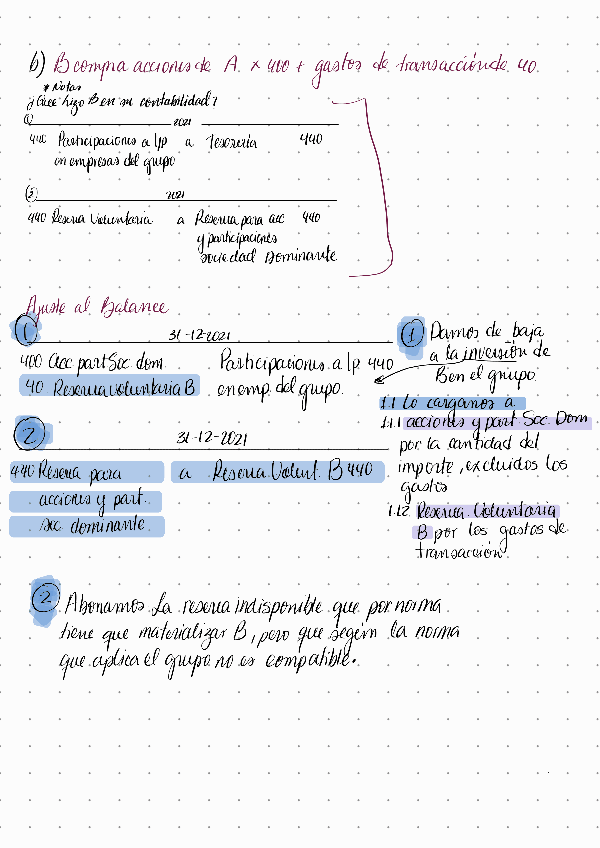 b) B compra acciones de A. x 400 + gastos de transacción de 40.
* Notas
¿Qué hizo B en su contabilidad?
(1) 2021
440 Participaciones a l/p a Tesorería 440
en empresas del grupo
(2) 2021
440 Reserva Voluntaria a Reserva para acc 440
y participaciones
sociedad Dominante
Ajuste al Balance
1 31-12-2021
400 acc part Soc. dom. Participaciones a l/p 440
40 Reserva voluntaria B en emp. del grupo.
2 31-12-2021
440 Reserva para a Reserva Volunt. B 440
acciones y part
soc dominante
1 Damos de baja
a la inversión de
B en el grupo.
1.1 Lo cargamos a
1.1.1 acciones y part. Soc. Dom
por la cantidad del
importe, excluidos los
gastos
1.1.2 Reserva Voluntaria
B por los gastos de
transacción.
2 Abonamos la reserva indisponible que por norma
tiene que materializar B, pero que según la norma
que aplica el grupo no es compatible.